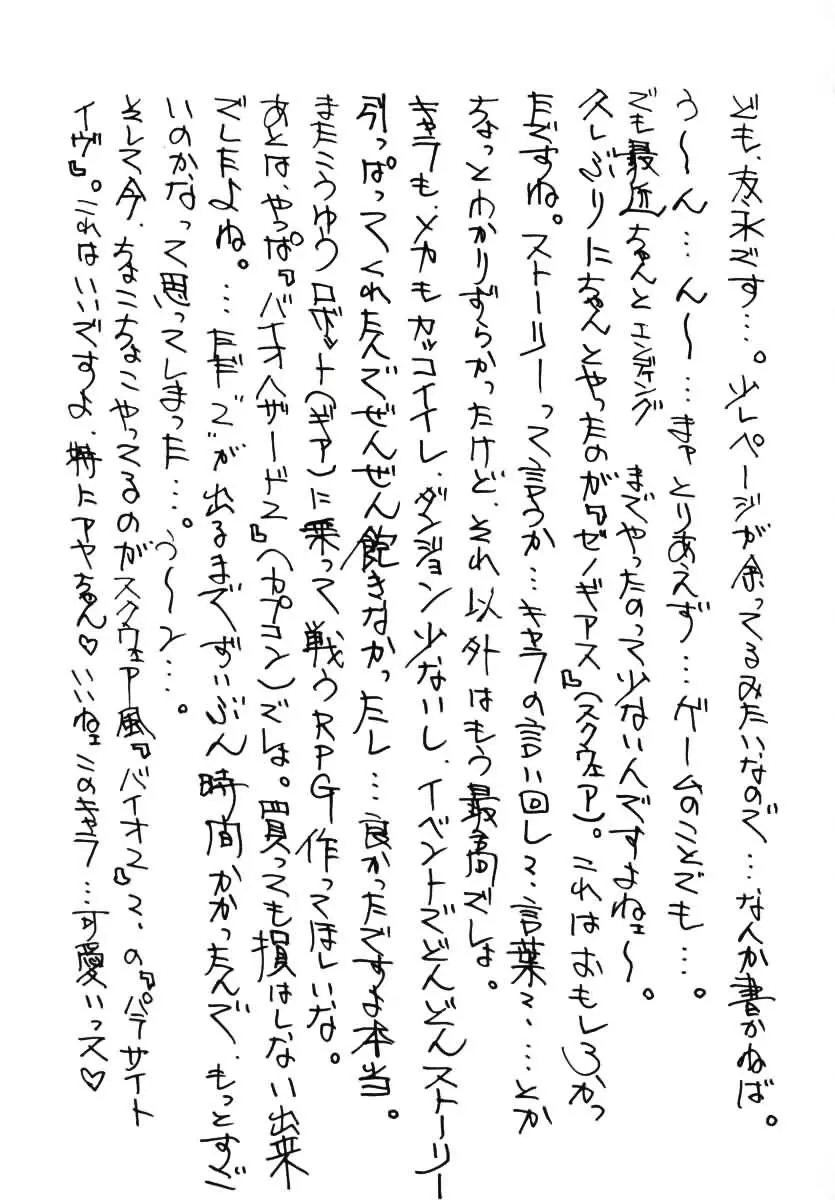 ども、友永です…。少しページが余ってるみたいなので…なんか書かねば。
う〜ん…ん〜…まァとりあえず…ゲームのことでも…。
でも最近ちゃんとエンディングまでやったのって少ないんですよねェ〜。
久しぶりにちゃんとやったのが『ゼノギアス』(スクウェア)。これはおもしろかっ
たですね。ストーリーって言うか…キャラの言い回しで、言葉で、…とか
ちょっとわかりずらかったけど、それ以外はもう最高でしょ。
キャラも、メカもカッコイイし、ダンジョン少ないし、イベントでどんどんストーリー
引っぱってくれたんでぜんぜん飽きなかったし…良かったですよ本当。
またこうゆうロボット(ギア)に乗って戦うRPG作ってほしいな。
あとは、やっぱ『バイオハザード2』(カプコン)でしょ。買っても損はしない出来
でしたよね。…ただ"2"が出るまでずいぶん時間かかったんで、もっとすご
いのかなって思ってしまった…。う〜ン…。
そして今、ちょこちょこやってるのがスクウェア風『バイオ2』で、の『パラサイト
イヴ』。これはいいですよ、特にアヤちゃん♡いいねェこのキャラ…可愛いっス♡